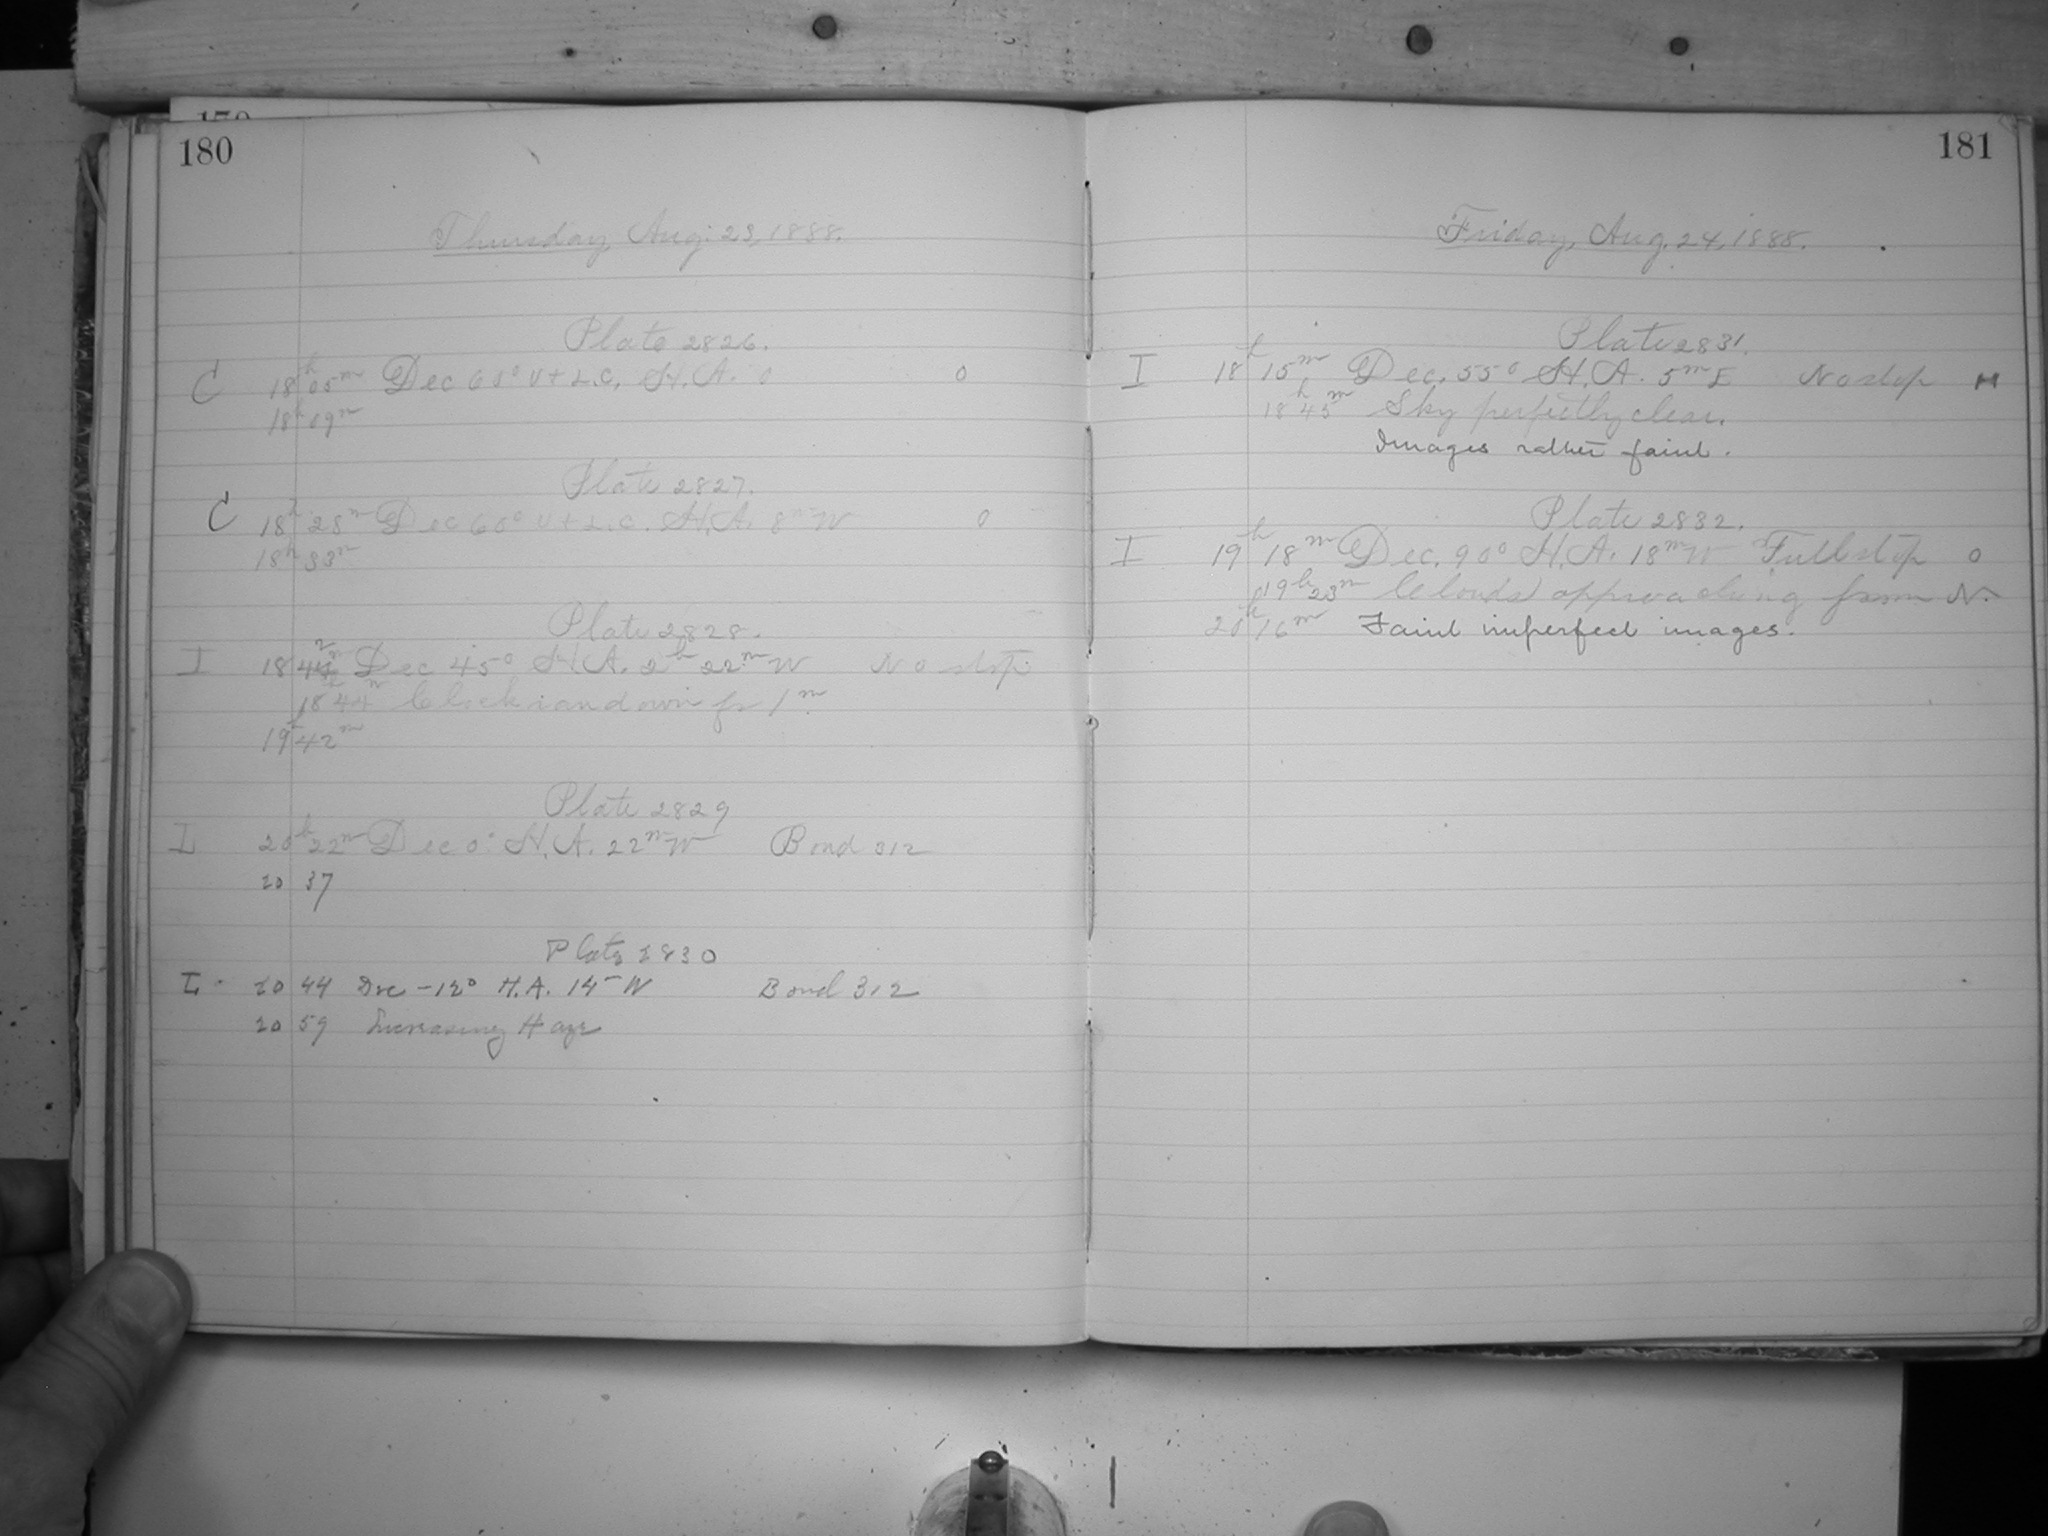 180
Thursday, Aug. 23, 1888.
Plate 2826.
C 18h 05m Dec 60° U + L.C. H.A. 0 0
18h 09m
Plate 2827.
C 18h 28m Dec 60° U + L.C. H.A. 8m W 0
18h 33m
Plate 2828.
I 18 Dec 45° H.A. 2h 22m W No stop.
18 44m Clock ran down for 1m
19 42m
Plate 2829
I 20h 22m Dec 0° H.A. 22m W Bond 312
20 37
Plate 2830
I 20 44 Dec -12° H.A. 14m W Bond 312
20 59 Increasing Haze
181
Friday, Aug. 24, 1888.
Plate 2831.
I 18h 15m Dec. 55° H.A. 5m E No stop H
18h 45m Sky perfectly clear.
Images rather faint.
Plate 2832.
I 19h 18m Dec. 90° H.A. 18m W Full stop 0
19h 23m Clouds approaching from N.
20h 16m Faint imperfect images.